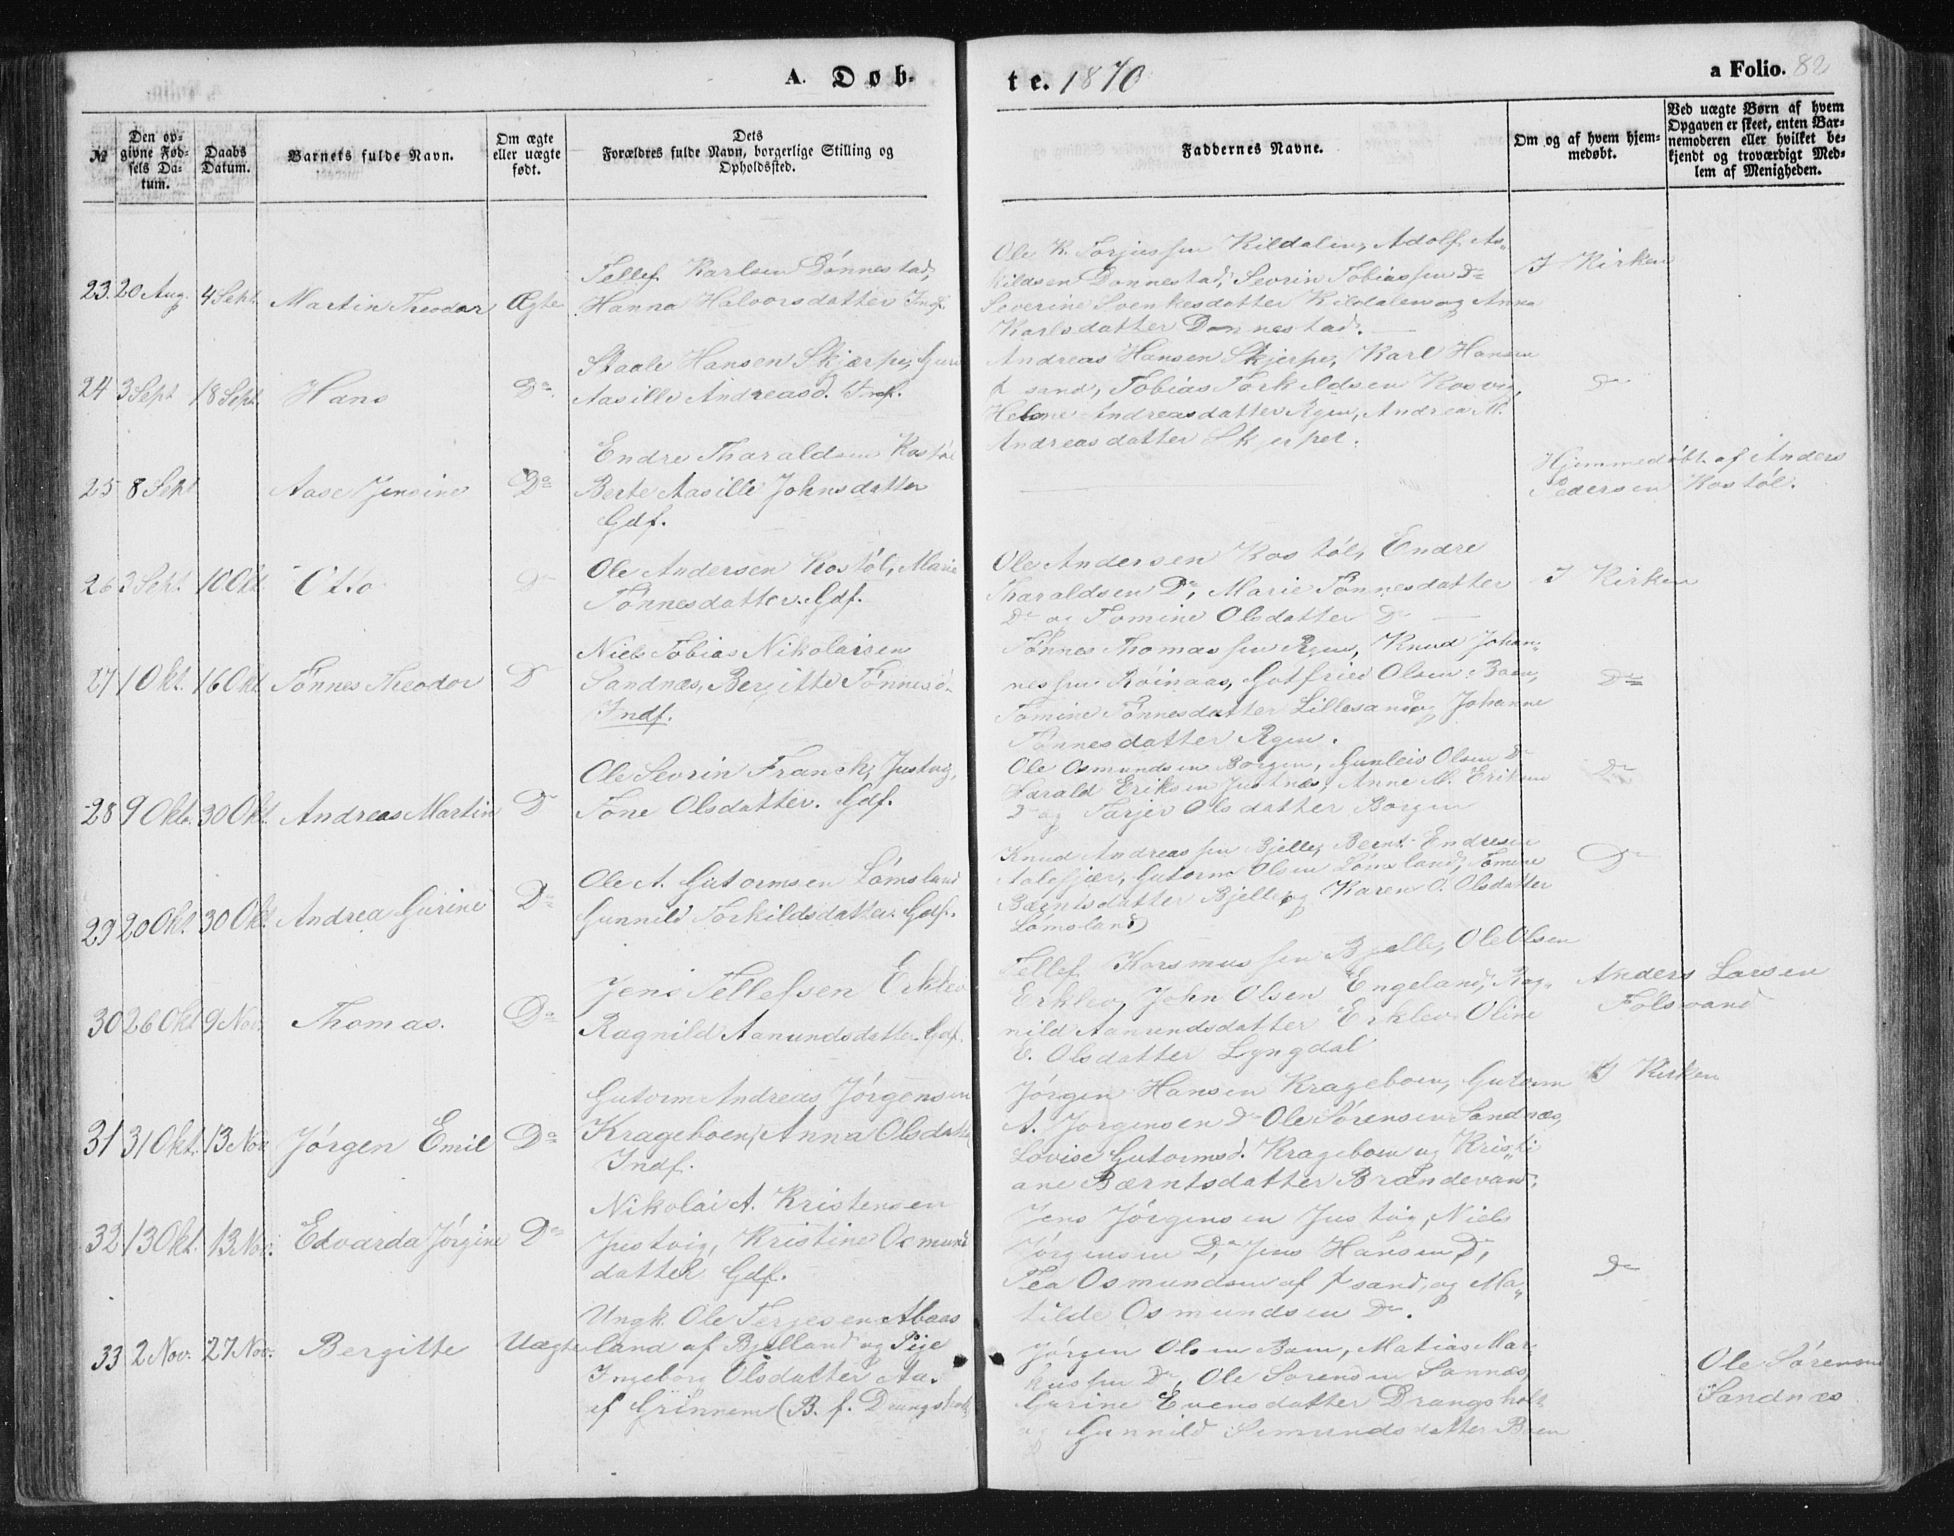 A. Døb-
te. 1870
a Folio. 82
№
Den op-
givne Fød-
sels Da-
tum.
Daabs
Datum.
Barnets fulde Navn.
Om ægte
eller uægte
født.
Dets
Forældres fulde Navn, borgerlige Stilling og
Opholdssted.
Faddernes Navne.
Om og af hvem hjem-
medøbt.
Ved uægte Børn af hvem
Opgaven er skeet, enten Bar-
nemoderen eller hvilket be-
kjendt og troværdigt Med-
lem af Menigheden.
23. 20 Aug. 4 Sept. Martin Theodor Ægte
Tellef Karlsen Dönnestad,
Hanna Halvorsdatter Indf.
Ole K. Torjussen Kildalen, Adolf As-
kildsen Donnestad, Sevrin Tobiassen Do
Severine Svenkesdatter Kildalen og Anna
Karlsdatter Donnestad.
I Kirken
24 3 Sept 18 Sept. Hans Do.
Staale Hansen Skjærpe, Guri
Aasille Andreasd. Indf.
Andreas Hansen Skjerpe, Karl Hansen
sand, Tobias Torkildsen Kosvig,
Helene Andreasdatter Rgen, Andrea M.
Andreasdatter Skjerpet.
Do
25 8 Sept Aase Jensine Do
Endre Tharaldsen Kostöl
Berte Aasille Johnsdatter
Gdf.
Hjemmedöbt af Anders
Pedersen Kostöl.
26 3 Sept. 10 Okt. Otto Do
Ole Andersen Kostöl, Marie
Tönnesdatter. Gdf.
Ole Andersen Kostöl, Endre
Tharaldsen Do, Marie Tönnesdatter
Do og Tomine Olsdatter Do
I Kirken
27 1 Okt. 16 Okt Tönnes Theodor D
Niels Tobias Nikolaisen
Sandnæs, Bergitte Tönnesd.
Indf.
Tönnes Thomassen Rgen, Knud Johan-
nessen Röinaas, Gotfried Olsen Boen,
Tomine Tönnesdatter Lillesand og Johanne
Tönnesdatter Rgen.
Do
28 9 Okt. 30 Okt. Andreas Martin D
Ole Sevrin Franck, Justvig,
Tone Olsdatter. Gdf.
Ole Osmundsen Borgen, Gunleiv Olsen Do
Harald Eriksen Justnæs, Anne M. Eriksen
Do og Tarjer Olsdatter Borgen
Do
29 20 Okt. 30 Okt. Andrea Gurine Do
Ole A. Gutormsen Lömsland
Gunnild Torkildsdatter. Gdf.
Knud Andreassen Bjelle, Bernt Endresen
Aalefjær, Gutorm Olsen Lömsland, Tomine
Bærntsdatter Bjelle og Karen O. Olsdatter
Lömsland
Do
30 26 Okt 9 Nov. Thomas. Do
Jens Tellefsen Erklev
Ragnild Aanundsdatter Gdf.
Tellef Korsmussen Bjelle, Ole Olsen
Erklev, John Olsen Engeland, Rag-
nild Aanundsdatter Erklev Oline
E. Olsdatter Lyngdal
Anders Larsen
Tolsvand
31 31 Okt. 13 Nov Jörgen Emil Do
Gutorm Andreas Jörgensen
Krageboen, Anna Olsdatt
Indf.
Jörgen Hansen Krageboen, Gutorm
A. Jörgensen Do Ole Sörensen Sandnæs,
Lovise Gutormsd. Krageboen og Kristi
ane Bærntsdatter Brændevand.
I Kirken
32 13 Okt. 13 Nov. Edvarda Jörgine Do
Nikolai A. Kristensen
Justvig, Kristine Osmund
datter Gdf.
Jens Jörgensen Justvig, Niels
Jörgensen Do, Jens Hansen Do,
Tea Osmundsen af sand, og Ma-
tilde Osmundsen Do.
Do
33 2 Nov. 27 Nov. Bergitte Uægte
Ungk. Ole Terjesen Abaas
land af Bjelland og Pige
Ingeborg Olsdatter Aa.
af Grinnem (B. f. Drangsholt
Jörgen Olsen Boen, Matias Mar
kussen Do, Ole Sörensen Sannæs,
Gurine Evensdatter Drangsholt
og Gunnild Semundsdatter Boen
Ole Sörensen
Sandnæs